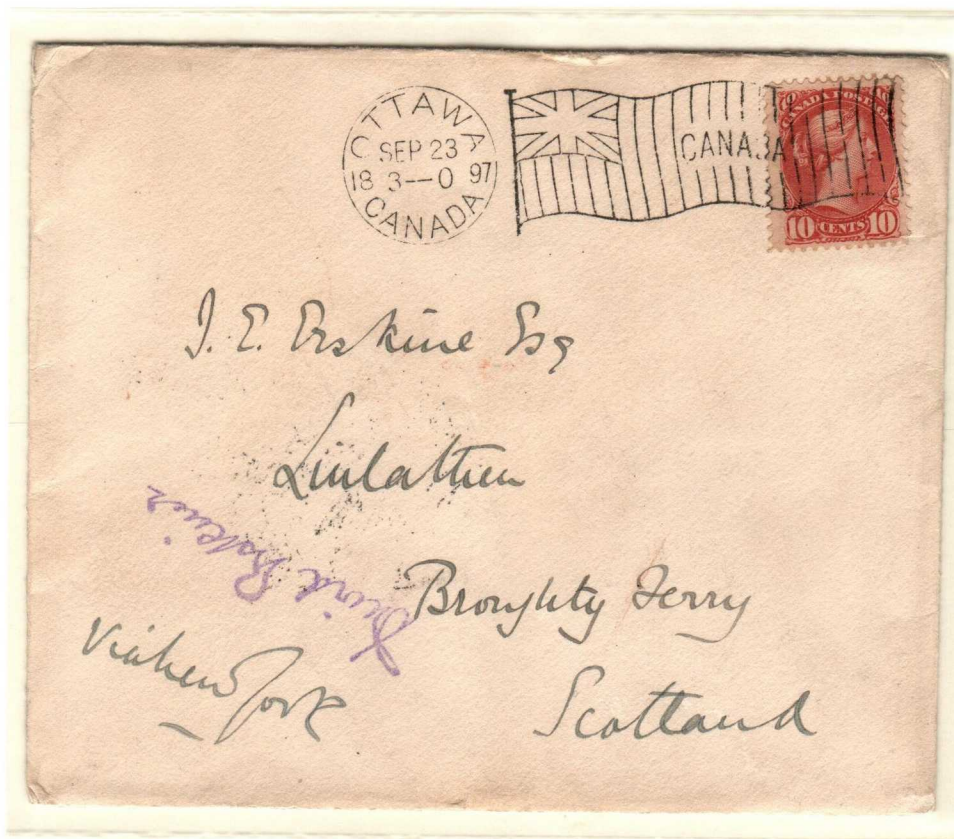 OTTAWA
SEP 23
18 3--0 97
CANADA
CANADA
CANADA POSTAGE
10 CENTS 10
J. E. Erskine Esq
Linlathen
Broughty Ferry
Scotland
Via New York
David Erskine